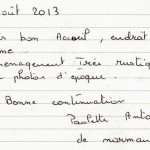 oût 2013
s bon Accueil, endroit
me
ménagement très rustiq
photos d'époque.
Bonne continuation
Paulette Anto
de norman